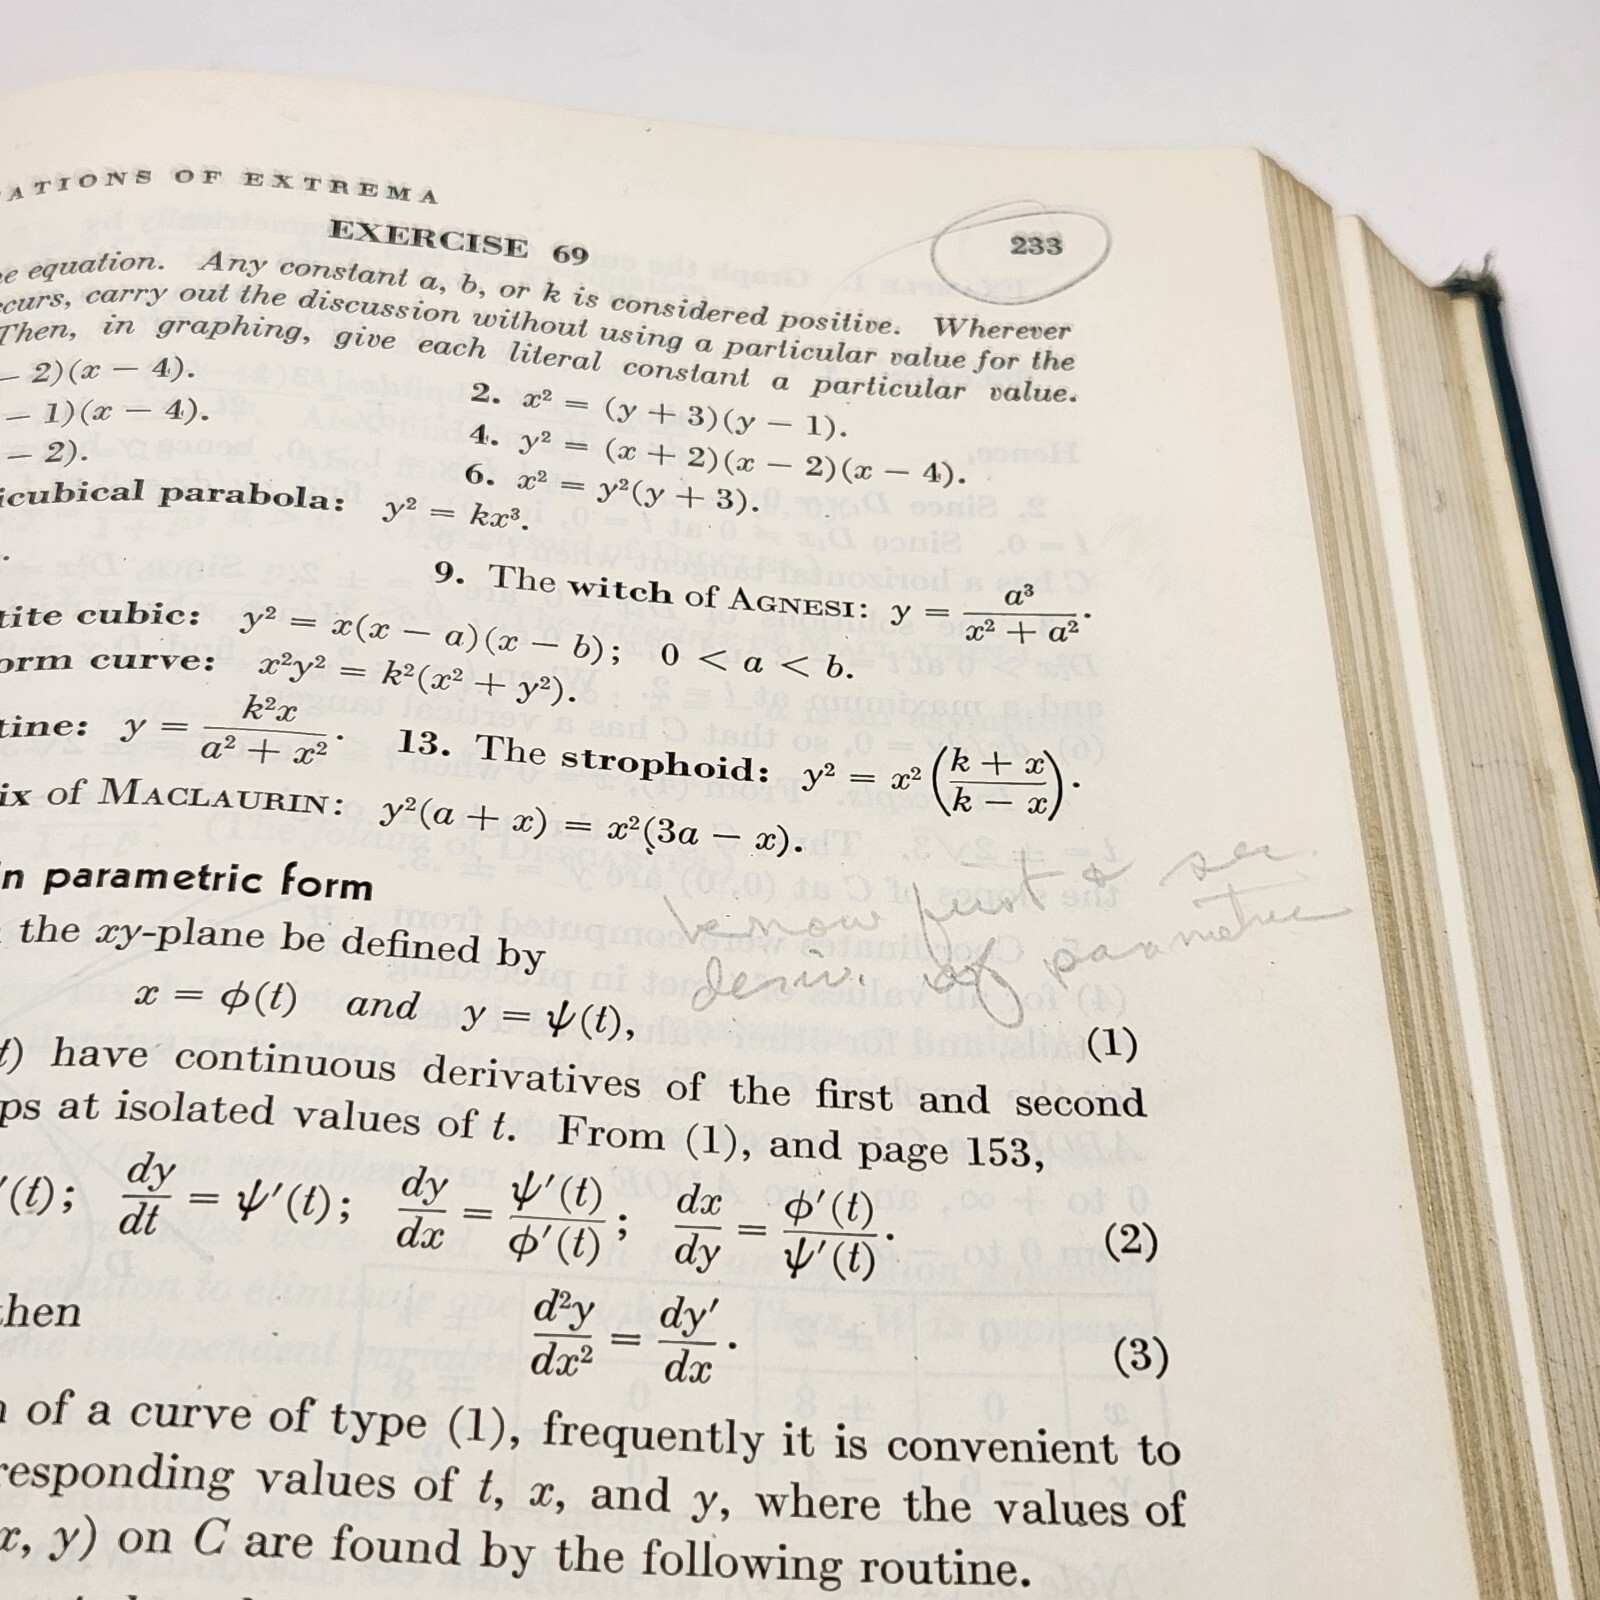 ATIONS OF EXTREMA 233
EXERCISE 69
e equation. Any constant a, b, or k is considered positive. Wherever
curs, carry out the discussion without using a particular value for the
Then, in graphing, give each literal constant a particular value.
− 2)(x − 4). 2. x² = (y + 3)(y − 1).
− 1)(x − 4). 4. y² = (x + 2)(x − 2)(x − 4).
− 2). 6. x² = y²(y + 3).
icubical parabola: y² = kx³.
9. The witch of AGNESI: y = a³/(x² + a²).
tite cubic: y² = x(x − a)(x − b); 0 < a < b.
orm curve: x²y² = k²(x² + y²).
tine: y = k²x/(a² + x²). 13. The strophoid: y² = x²((k + x)/(k − x)).
ix of MACLAURIN: y²(a + x) = x²(3a − x).
know first & sec.
deriv. of parametric
n parametric form
the xy-plane be defined by
x = ϕ(t) and y = ψ(t), (1)
t) have continuous derivatives of the first and second
ps at isolated values of t. From (1), and page 153,
′(t); dy/dt = ψ′(t); dy/dx = ψ′(t)/ϕ′(t); dx/dy = ϕ′(t)/ψ′(t). (2)
then d²y/dx² = dy′/dx. (3)
of a curve of type (1), frequently it is convenient to
responding values of t, x, and y, where the values of
x, y) on C are found by the following routine.